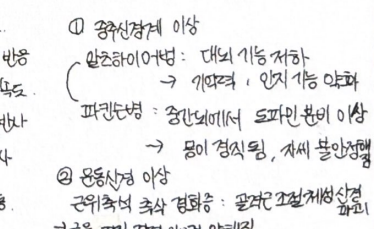 ① 중추신경계 이상
반응
알츠하이머병 : 대뇌 기능 저하
속도.
→ 기억력, 인지 기능 약화
반사
파킨슨병 : 중간뇌에서 도파민 분비 이상
→ 몸이 경직됨, 자세 불안정
② 운동신경 이상
근위축성 측삭 경화증 : 골격근 조절 체성 신경 파괴